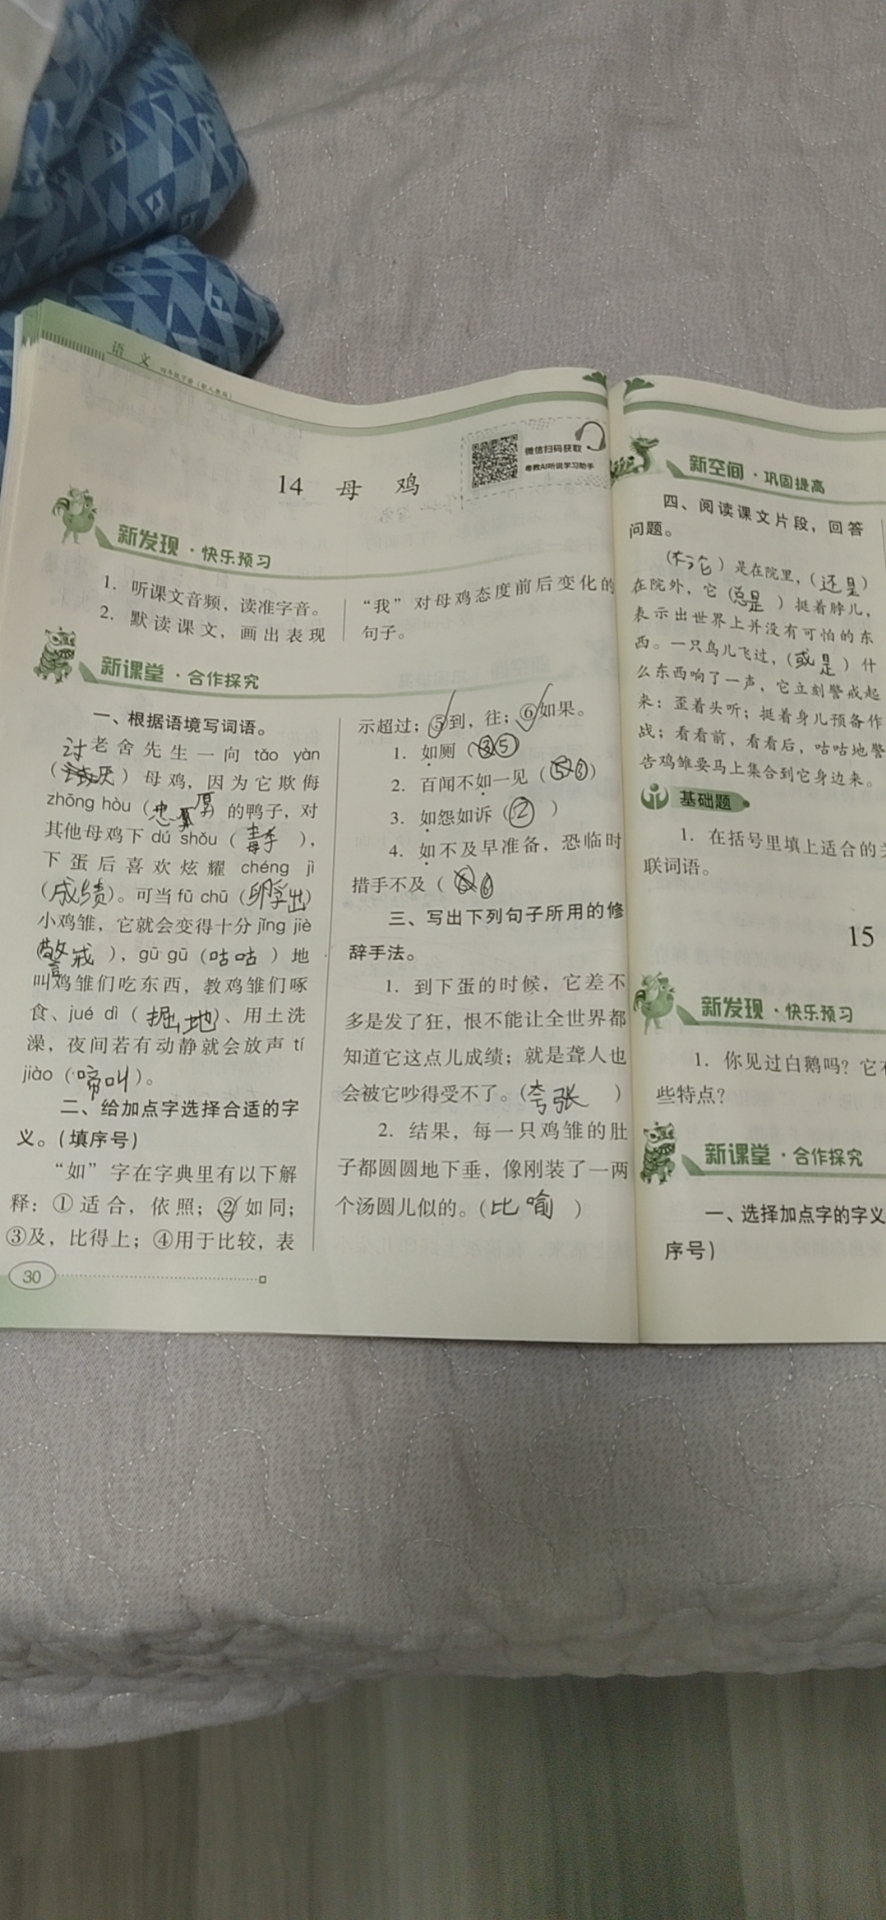 语 文
14 母 鸡
微信扫码获取
粤教AI听说学习助手
新发现·快乐预习
1. 听课文音频，读准字音。
2. 默读课文，画出表现
“我”对母鸡态度前后变化的
句子。
新课堂·合作探究
一、根据语境写词语。
老舍先生一向 tǎo yàn
（讨厌）母鸡，因为它欺侮
zhōng hòu（忠厚）的鸭子，对
其他母鸡下 dú shǒu（毒手），
下蛋后喜欢炫耀 chéng jì
（成绩）。可当 fū chū（孵出）
小鸡雏，它就会变得十分 jǐng jiè
（警戒），gū gū（咕咕）地
叫鸡雏们吃东西，教鸡雏们啄
食、jué dì（掘地）、用土洗
澡，夜间若有动静就会放声 tí
jiào（啼叫）。
二、给加点字选择合适的字
义。（填序号）
“如”字在字典里有以下解
释：①适合，依照；②如同；
③及，比得上；④用于比较，表
30
示超过；⑤到，往；⑥如果。
1. 如厕（⑤）
2. 百闻不如一见（）
3. 如怨如诉（②）
4. 如不及早准备，恐临时
措手不及（⑥）
三、写出下列句子所用的修
辞手法。
1. 到下蛋的时候，它差不
多是发了狂，恨不能让全世界都
知道它这点儿成绩；就是聋人也
会被它吵得受不了。（夸张）
2. 结果，每一只鸡雏的肚
子都圆圆地下垂，像刚装了一两
个汤圆儿似的。（比喻）
新空间·巩固提高
四、阅读课文片段，回答
问题。
（不论）是在院里，（还是）
在院外，它（总是）挺着脖儿，
表示出世界上并没有可怕的东
西。一只鸟儿飞过，（或是）什
么东西响了一声，它立刻警戒起
来：歪着头听；挺着身儿预备作
战；看看前，看看后，咕咕地警
告鸡雏要马上集合到它身边来。
基础题
1. 在括号里填上适合的
联词语。
15
新发现·快乐预习
1. 你见过白鹅吗？它
些特点？
新课堂·合作探究
一、选择加点字的字义
序号）